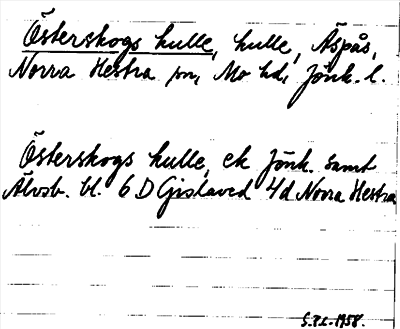 Österskogs kulle, kulle, Äspås,
Norra Hestra sn, Mo hd, Jönk. l.
Österskogs kulle, ek Jönk. samt
Älvsb. bl. 6 D Gislaved 4d Norra Hestra
1958.